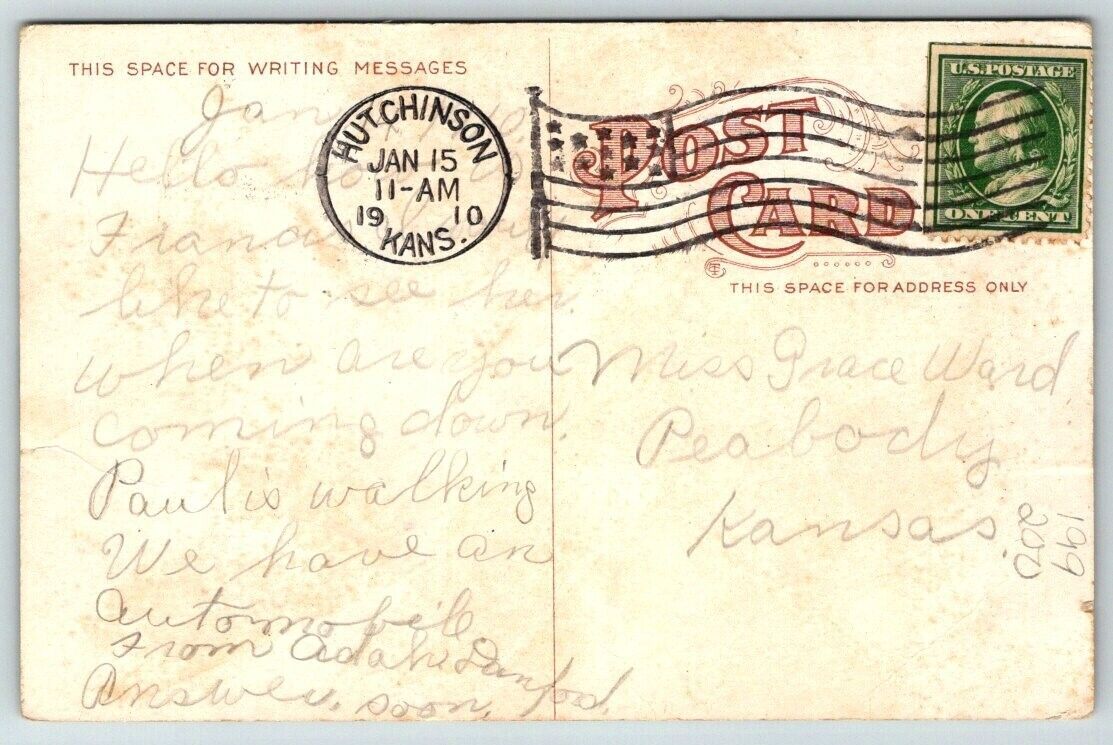 THIS SPACE FOR WRITING MESSAGES
Jan
Hello
Francis
like to see her.
when are you
coming down.
Paul is walking
We have an
automobile
From Adah Danford.
Answer soon.
HUTCHINSON
JAN 15
11-AM
19 10
KANS.
POST
CARD
U.S. POSTAGE
ONE CENT
THIS SPACE FOR ADDRESS ONLY
Miss Grace Ward
Peabody
Kansas.
199
200